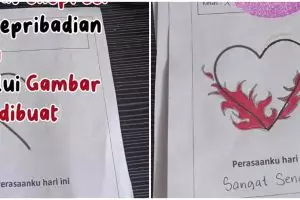 epribadian
ui Gambar
dibuat
erasaanku hari ini
Kelas
Perasaanku hari ini
Sangat Sen